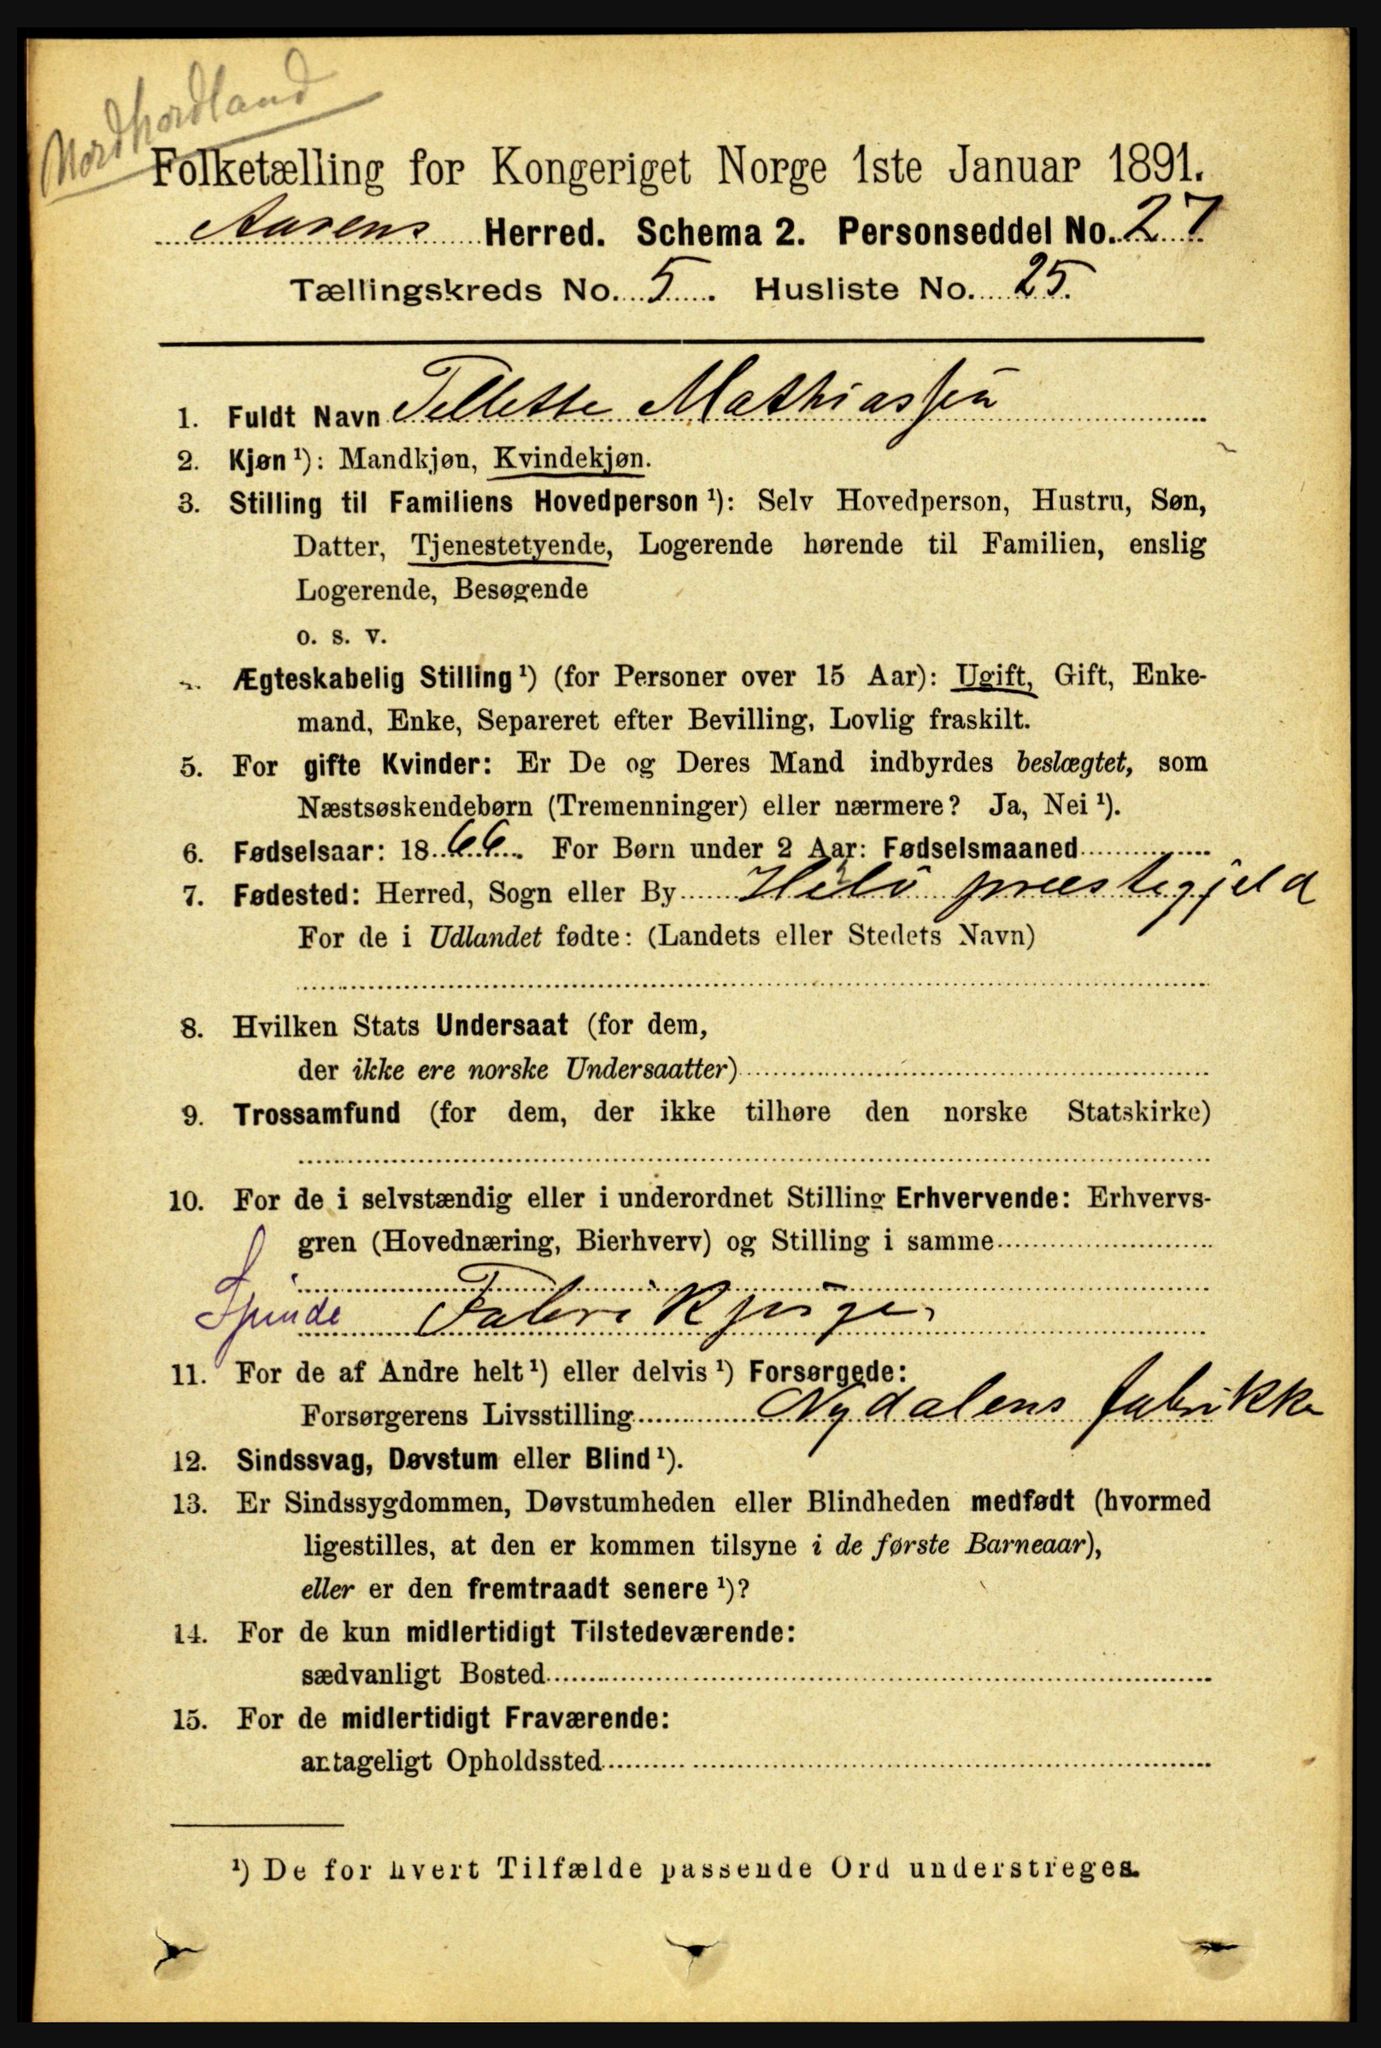 Nordhordland
Folketælling for Kongeriget Norge 1ste Januar 1891.
Aasens Herred. Schema 2. Personseddel No. 27
Tællingskreds No. 5. Husliste No. 25.
1. Fuldt Navn Tellette Mathiassen
2. Kjøn ¹): Mandkjøn, Kvindekjøn.
3. Stilling til Familiens Hovedperson ¹): Selv Hovedperson, Hustru, Søn,
Datter, Tjenestetyende, Logerende hørende til Familien, enslig
Logerende, Besøgende
o. s. v.
Ægteskabelig Stilling ¹) (for Personer over 15 Aar): Ugift, Gift, Enke-
mand, Enke, Separeret efter Bevilling, Lovlig fraskilt.
5. For gifte Kvinder: Er De og Deres Mand indbyrdes beslægtet, som
Næstsøskendebørn (Tremenninger) eller nærmere? Ja, Nei ¹).
6. Fødselsaar: 1866. For Børn under 2 Aar: Fødselsmaaned
7. Fødested: Herred, Sogn eller By præstegjeld
For de i Udlandet fødte: (Landets eller Stedets Navn)
8. Hvilken Stats Undersaat (for dem,
der ikke ere norske Undersaatter)
9. Trossamfund (for dem, der ikke tilhøre den norske Statskirke)
10. For de i selvstændig eller i underordnet Stilling Erhvervende: Erhvervs-
gren (Hovednæring, Bierhverv) og Stilling i samme
Fabrikpige
11. For de af Andre helt ¹) eller delvis ¹) Forsørgede:
Forsørgerens Livsstilling Nydalens fabrikke
12. Sindssvag, Døvstum eller Blind ¹).
13. Er Sindssygdommen, Døvstumheden eller Blindheden medfødt (hvormed
ligestilles, at den er kommen tilsyne i de første Barneaar),
eller er den fremtraadt senere ¹)?
14. For de kun midlertidigt Tilstedeværende:
sædvanligt Bosted
15. For de midlertidigt Fraværende:
antageligt Opholdssted
¹) De for hvert Tilfælde passende Ord understreges.